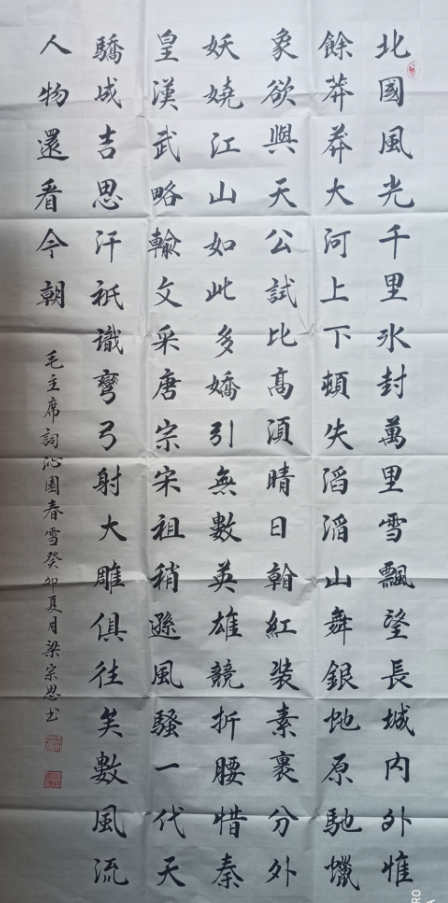 北國風光千里氷封萬里雪飄望長城内外惟
餘莽莽大河上下頓失滔滔山舞銀虵原馳蠟
象欲與天公試比髙須晴日翰紅裝素裹分外
妖嬈江山如此多嬌引無數英雄競折腰惜秦
皇漢武略輸文采唐宗宋祖稍遜風騷一代天
驕成吉思汗祇識彎弓射大雕俱往矣數風流
人物還看今朝
毛主席詞沁園春雪癸卯夏月梁宗恩书